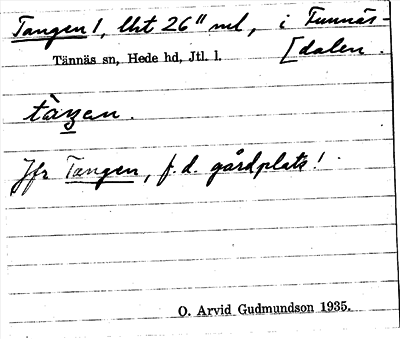 Tangen 1, lht 26" ml, i Funnäs-
[dalen.
Tännäs sn, Hede hd, Jtl. l.
Jfr Tangen, f.d. gårdplats!
O. Arvid Gudmundson 1935.